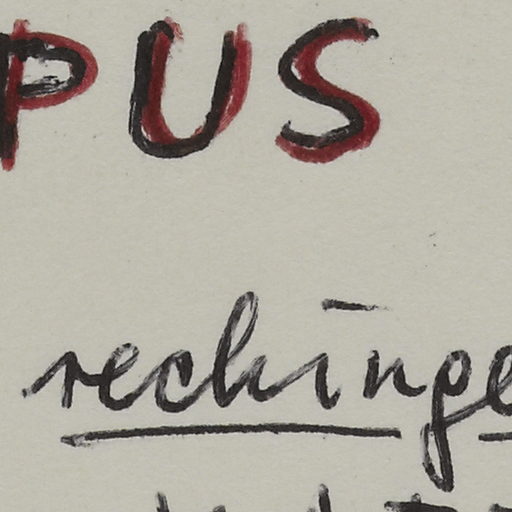 PUS
rechinge